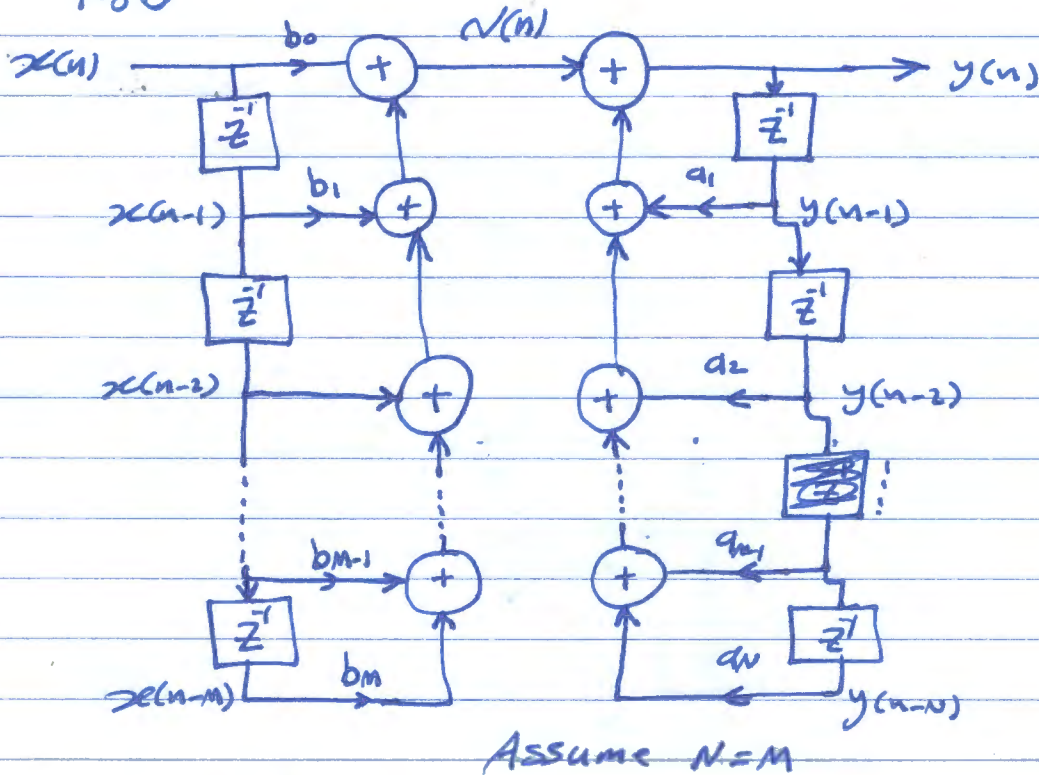 x(n) b0 + v(n) + y(n)
z^-1 z^-1
x(n-1) b1 + + a1 y(n-1)
z^-1 z^-1
x(n-2) + + a2 y(n-2)
bM-1 + + aN-1
z^-1 z^-1
x(n-M) bM aN y(n-N)
Assume N=M